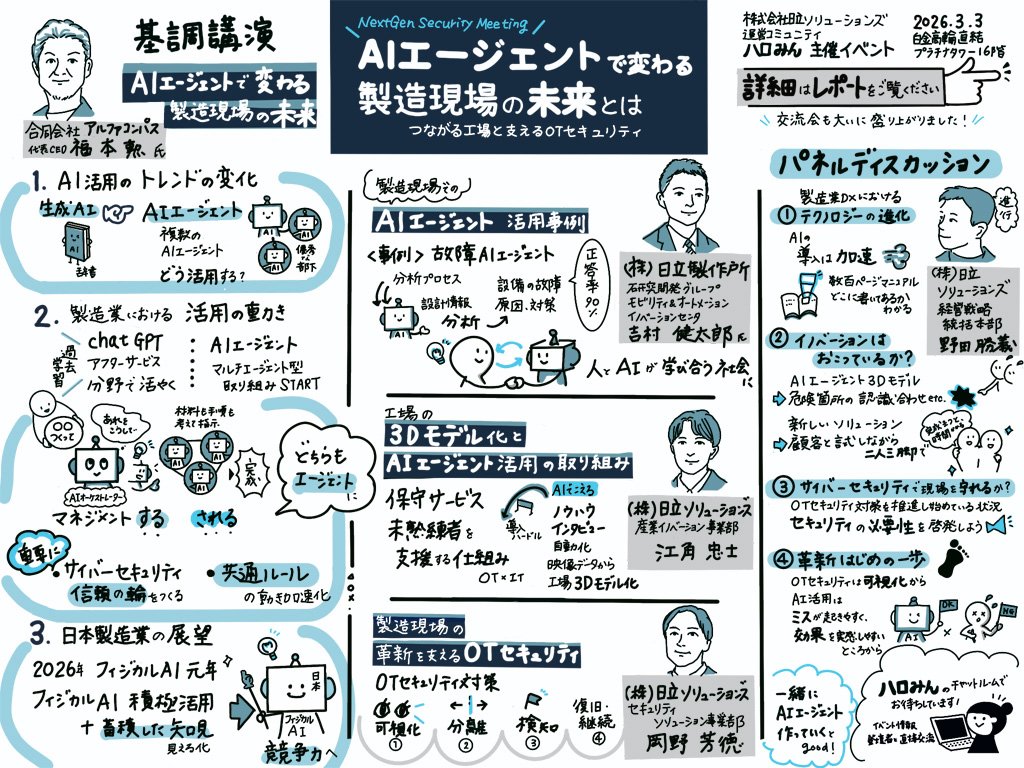 NextGen Security Meeting
AIエージェントで変わる
製造現場の未来とは
つながる工場と支えるOTセキュリティ
株式会社日立ソリューションズ
運営コミュニティ
ハロみん 主催イベント
2026.3.3
白金高輪直結
プラチナタワー16階
詳細はレポートをご覧ください
交流会も大いに盛り上がりました!
基調講演
AIエージェントで変わる
製造現場の未来
合同会社 アルファコンパス
代表CEO 福本 勲 氏
1. AI活用のトレンドの変化
生成AI
AIエージェント
AI
辞書
複数の
AIエージェント
どう活用する?
AI
AI
AI
優秀
な
部下
2. 製造業における 活用の動き
過去
学習
chat GPT
アフターサービス
分野で活やく
AIエージェント
マルチエージェント型
取り組みSTART
つくって
あれを
こうして…
AIオーケストレーター
材料も手順も
考えて指示
AI
AI
AI
人
家
マネジメント する される
どちらも
エージェントに
重要に
・サイバーセキュリティ
信頼の輪をつくる
・共通ルール
の動き加速化
3. 日本製造業の展望
2026年 フィジカルAI 元年
フィジカルAI 積極活用
+ 蓄積した知見
見える化
日本
フィジカル
AI
競争力へ
製造現場での
AIエージェント 活用事例
<事例> 故障AIエージェント
分析プロセス
設計情報
AI
分析
設備の故障
原因、対策
正答率90%
人とAIが学び合う社会に
(株)日立製作所
研究開発グループ
モビリティ&オートメーション
イノベーションセンタ
吉村 健太郎 氏
工場の
3Dモデル化と
AIエージェント活用の取り組み
保守サービス
未熟練者を
支援する仕組み
OT×IT
導入
ハードル
AIでこえる
ノウハウ
インタビュー
自動化
映像データから
工場3Dモデル化
(株)日立ソリューションズ
産業イノベーション事業部
江角 忠士
製造現場の
革新を支えるOTセキュリティ
OTセキュリティ対策
可視化
①
分離
②
検知
③
復旧・
継続
④
(株)日立ソリューションズ
セキュリティ
ソリューション事業部
岡野 芳徳
パネルディスカッション
進行
(株)日立
ソリューションズ
経営戦略
統括本部
野田 勝義
製造業DXにおける
① テクノロジーの進化
AIの
導入は加速
数百ページマニュアル
どこに書いてあるか
わかる
② イノベーションは
おこっているか?
AIエージェント3Dモデル
危険箇所の認識合わせetc.
新しいソリューション
顧客と試しながら
二人三脚で
③ サイバーセキュリティで現場を守れるか?
OTセキュリティ対策を推進し始めている状況
セキュリティの必要性を啓発しよう
④ 革新はじめの一歩
OTセキュリティは可視化から
AI活用は
ミスが起きやすく、
効果を実感しやすい
ところから
AI
OK
NG
一緒に
AIエージェント
作っていくと
good!
ハロみんのチャットルームで
お待ちしています!
イベント情報
登壇者と直接交流